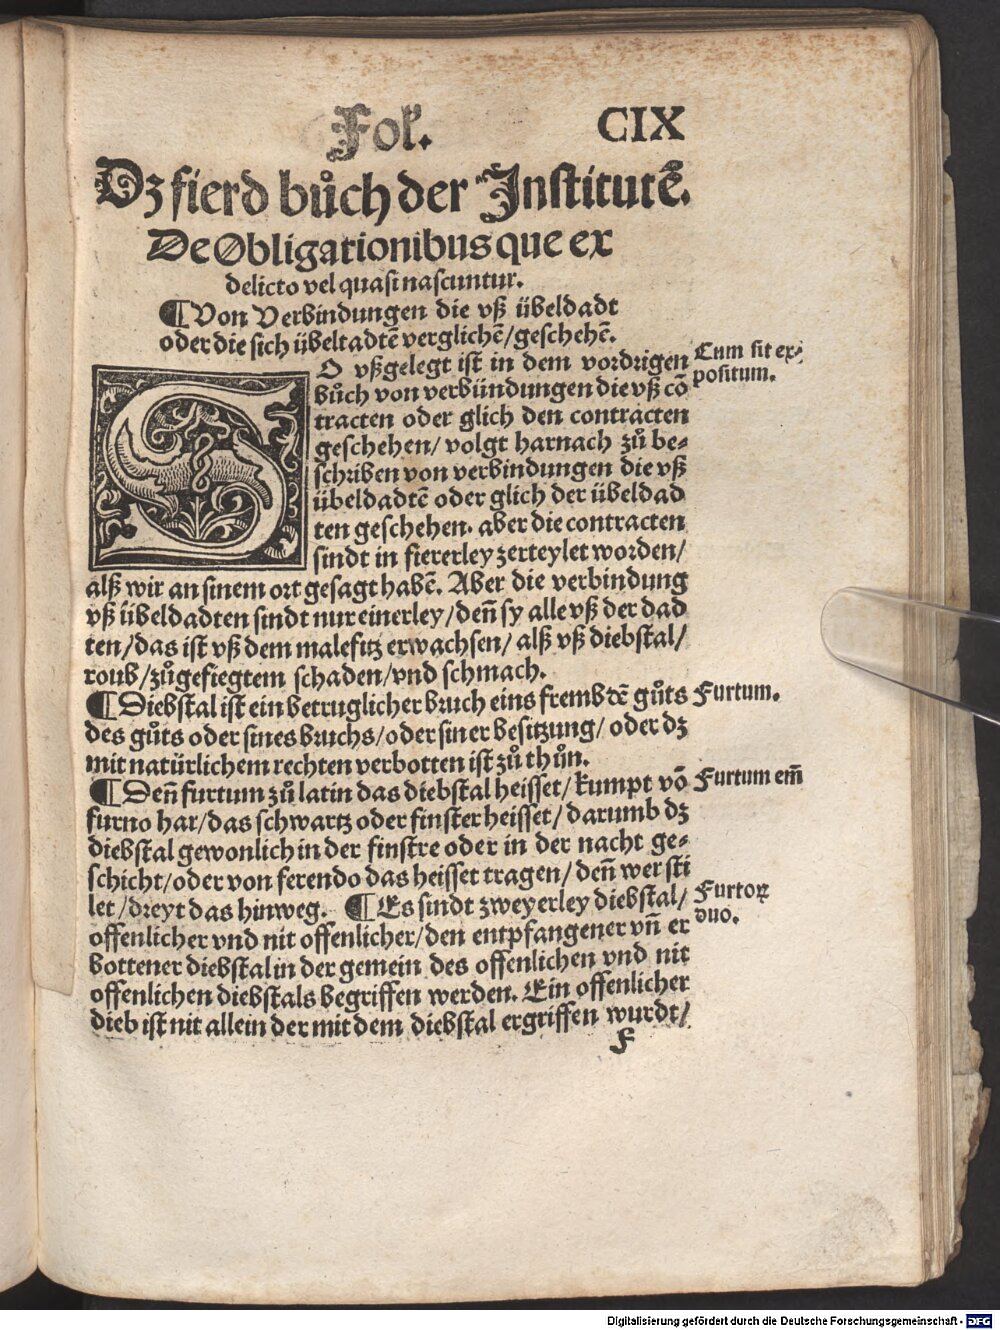 Fol. CIX
Dz fierd bůch der Institutẽ.
De Obligationibus que ex
delicto vel quasi nascuntur.
¶ Von Verbindungen die vß übeldadt
oder die sich übeltadtẽ verglichẽ/geschehẽ.
SO vßgelegt ist in dem vordrigen
bůch von verbündungen die vß cõ
tracten oder glich den contracten
geschehen/ volgt harnach zů be-
schriben von verbindungen die vß
übeldadtẽ oder glich der übeldad
ten geschehen. aber die contracten
sindt in fiererley zerteylet worden/
alß wir an sinem ort gesagt habẽ. Aber die verbindung
vß übeldadten sindt nur einerley/deñ sy alle vß der dad
ten/das ist vß dem malefitz erwachsen/ alß vß diebstal/
roub/zůgefiegtem schaden/vnd schmach.
¶ Diebstal ist ein betruglicher bruch eins frembdẽ gůts
des gůts oder sines bruchs/oder siner besitzung/ oder dz
mit natürlichem rechten verbotten ist zů thůn.
¶ Deñ furtum zů latin das diebstal heisset/ kumpt võ
furno har/das schwartz oder finster heisset/darumb dz
diebstal gewonlich in der finstre oder in der nacht ge-
schicht/oder von ferendo das heisset tragen/ deñ wer sti
let/dreyt das hinweg. ¶ Es sindt zweyerley diebstal/
offenlicher vnd nit offenlicher/den entpfangener vñ er
bottener diebstal in der gemein des offenlichen vnd nit
offenlichen diebstals begriffen werden. Ein offenlicher
dieb ist nit allein der mit dem diebstal ergriffen wurdt/
F
Cum sit ex-
positum.
Furtum.
Furtum em̃
Furtoꝝ
duo.
Digitalisierung gefördert durch die Deutsche Forschungsgemeinschaft - DFG